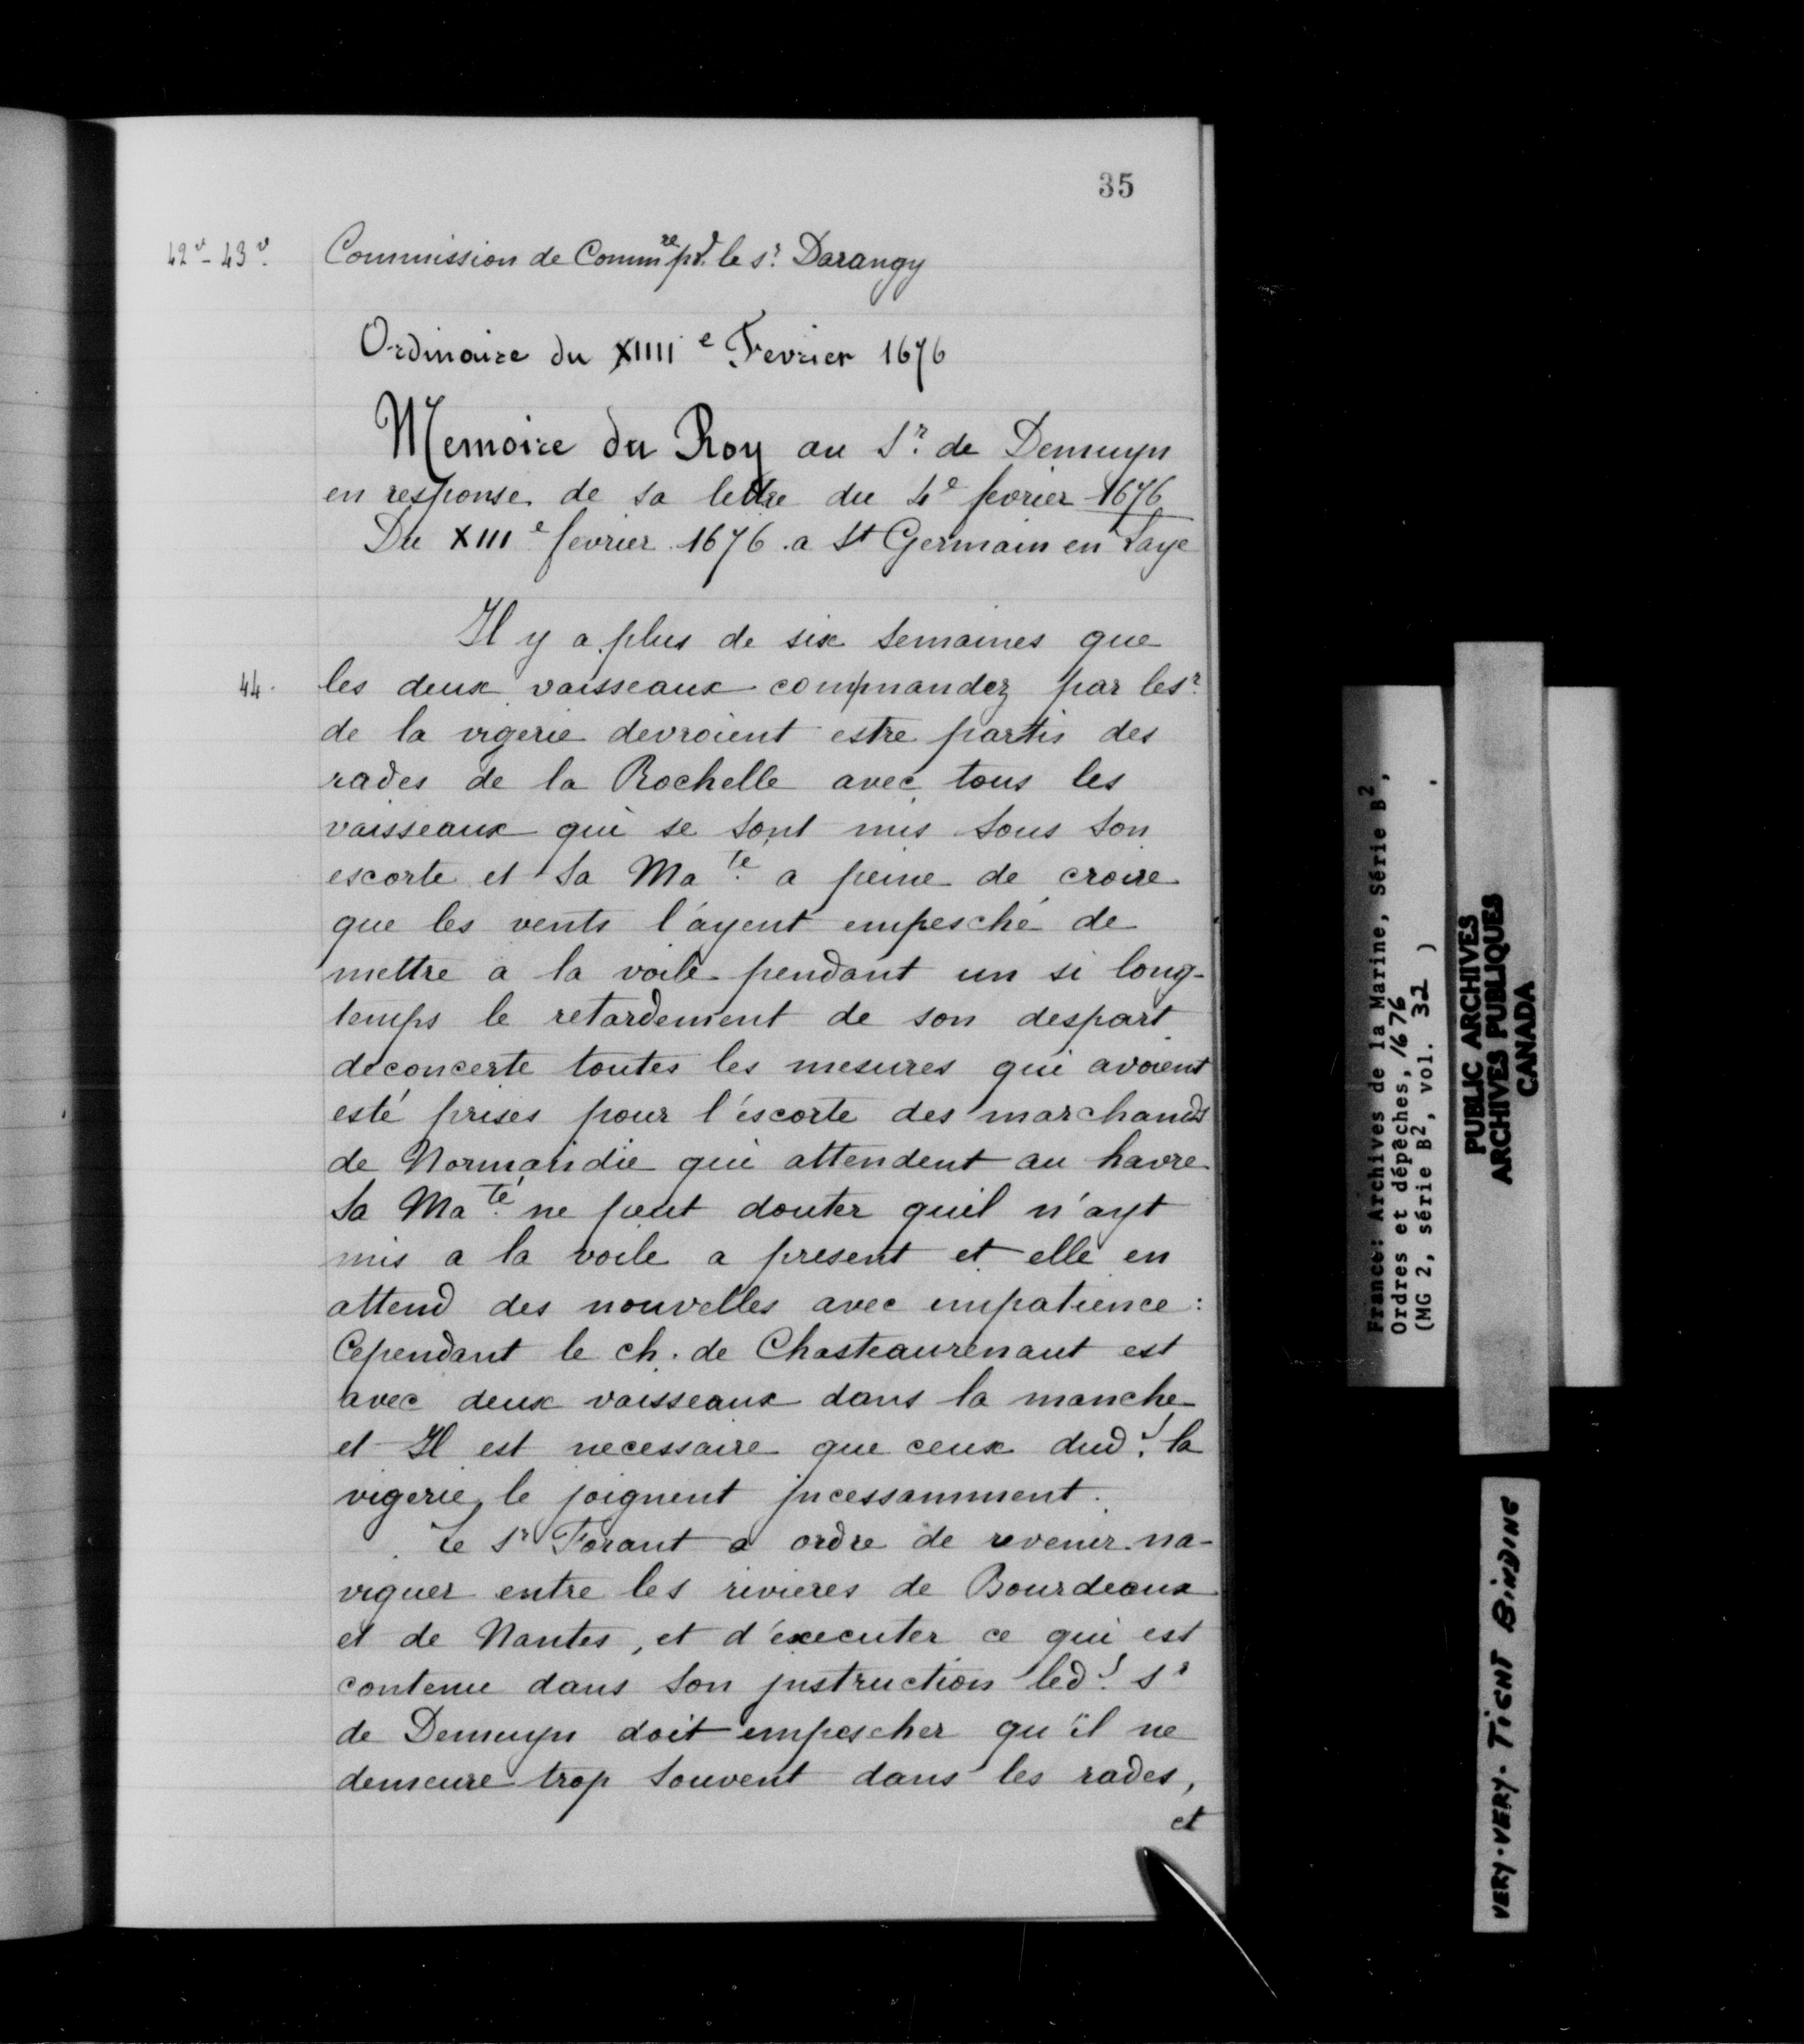 35
42v - 43v. Commission de Commre pr. le sr. Darangy
Ordinaire du XIIIIe Fevrier 1676
Memoire du Roy au Sr. de Demuyn
en response de sa lettre du 4e fevrier 1676
Du XIIIe fevrier 1676 a St Germain en Laye
Il y a plus de six semaines que
44. les deux vaisseaux commandez par lesr.
de la vigerie devroient estre partis des
rades de la Rochelle avec tous les
vaisseaux qui se sont mis sous son
escorte et sa Mate. a peine de croire
que les vents l'ayent empesché de
mettre a la voile pendant un si long-
temps le retardement de son despart
deconcerte toutes les mesures qui avoient
esté prises pour l'éscorte des marchands
de Normandie qui attendent au havre
Sa Maté. ne peut douter quil n'ayt
mis a la voile a present et elle en
attend des nouvelles avec impatience :
Cependant le ch. de Chasteaurenaut est
avec deux vaisseaux dans la manche
et Il est necessaire que ceux dud. la
vigerie le joignent jncessamment.
Le Sr Forant a ordre de revenir na-
viguer entre les rivieres de Bourdeaux
et de Nantes, et d'éxecuter ce qui est
contenu dans son jnstruction led. Sr
de Demuyn doit empescher qu'il ne
demeure trop souvent dans les rades,
et
France: Archives de la Marine, Série B2,
Ordres et dépêches, 1676 .
(MG 2, série B2, vol. 32 )
PUBLIC ARCHIVES
ARCHIVES PUBLIQUES
CANADA
VERY-VERY-TIGHT BINDING